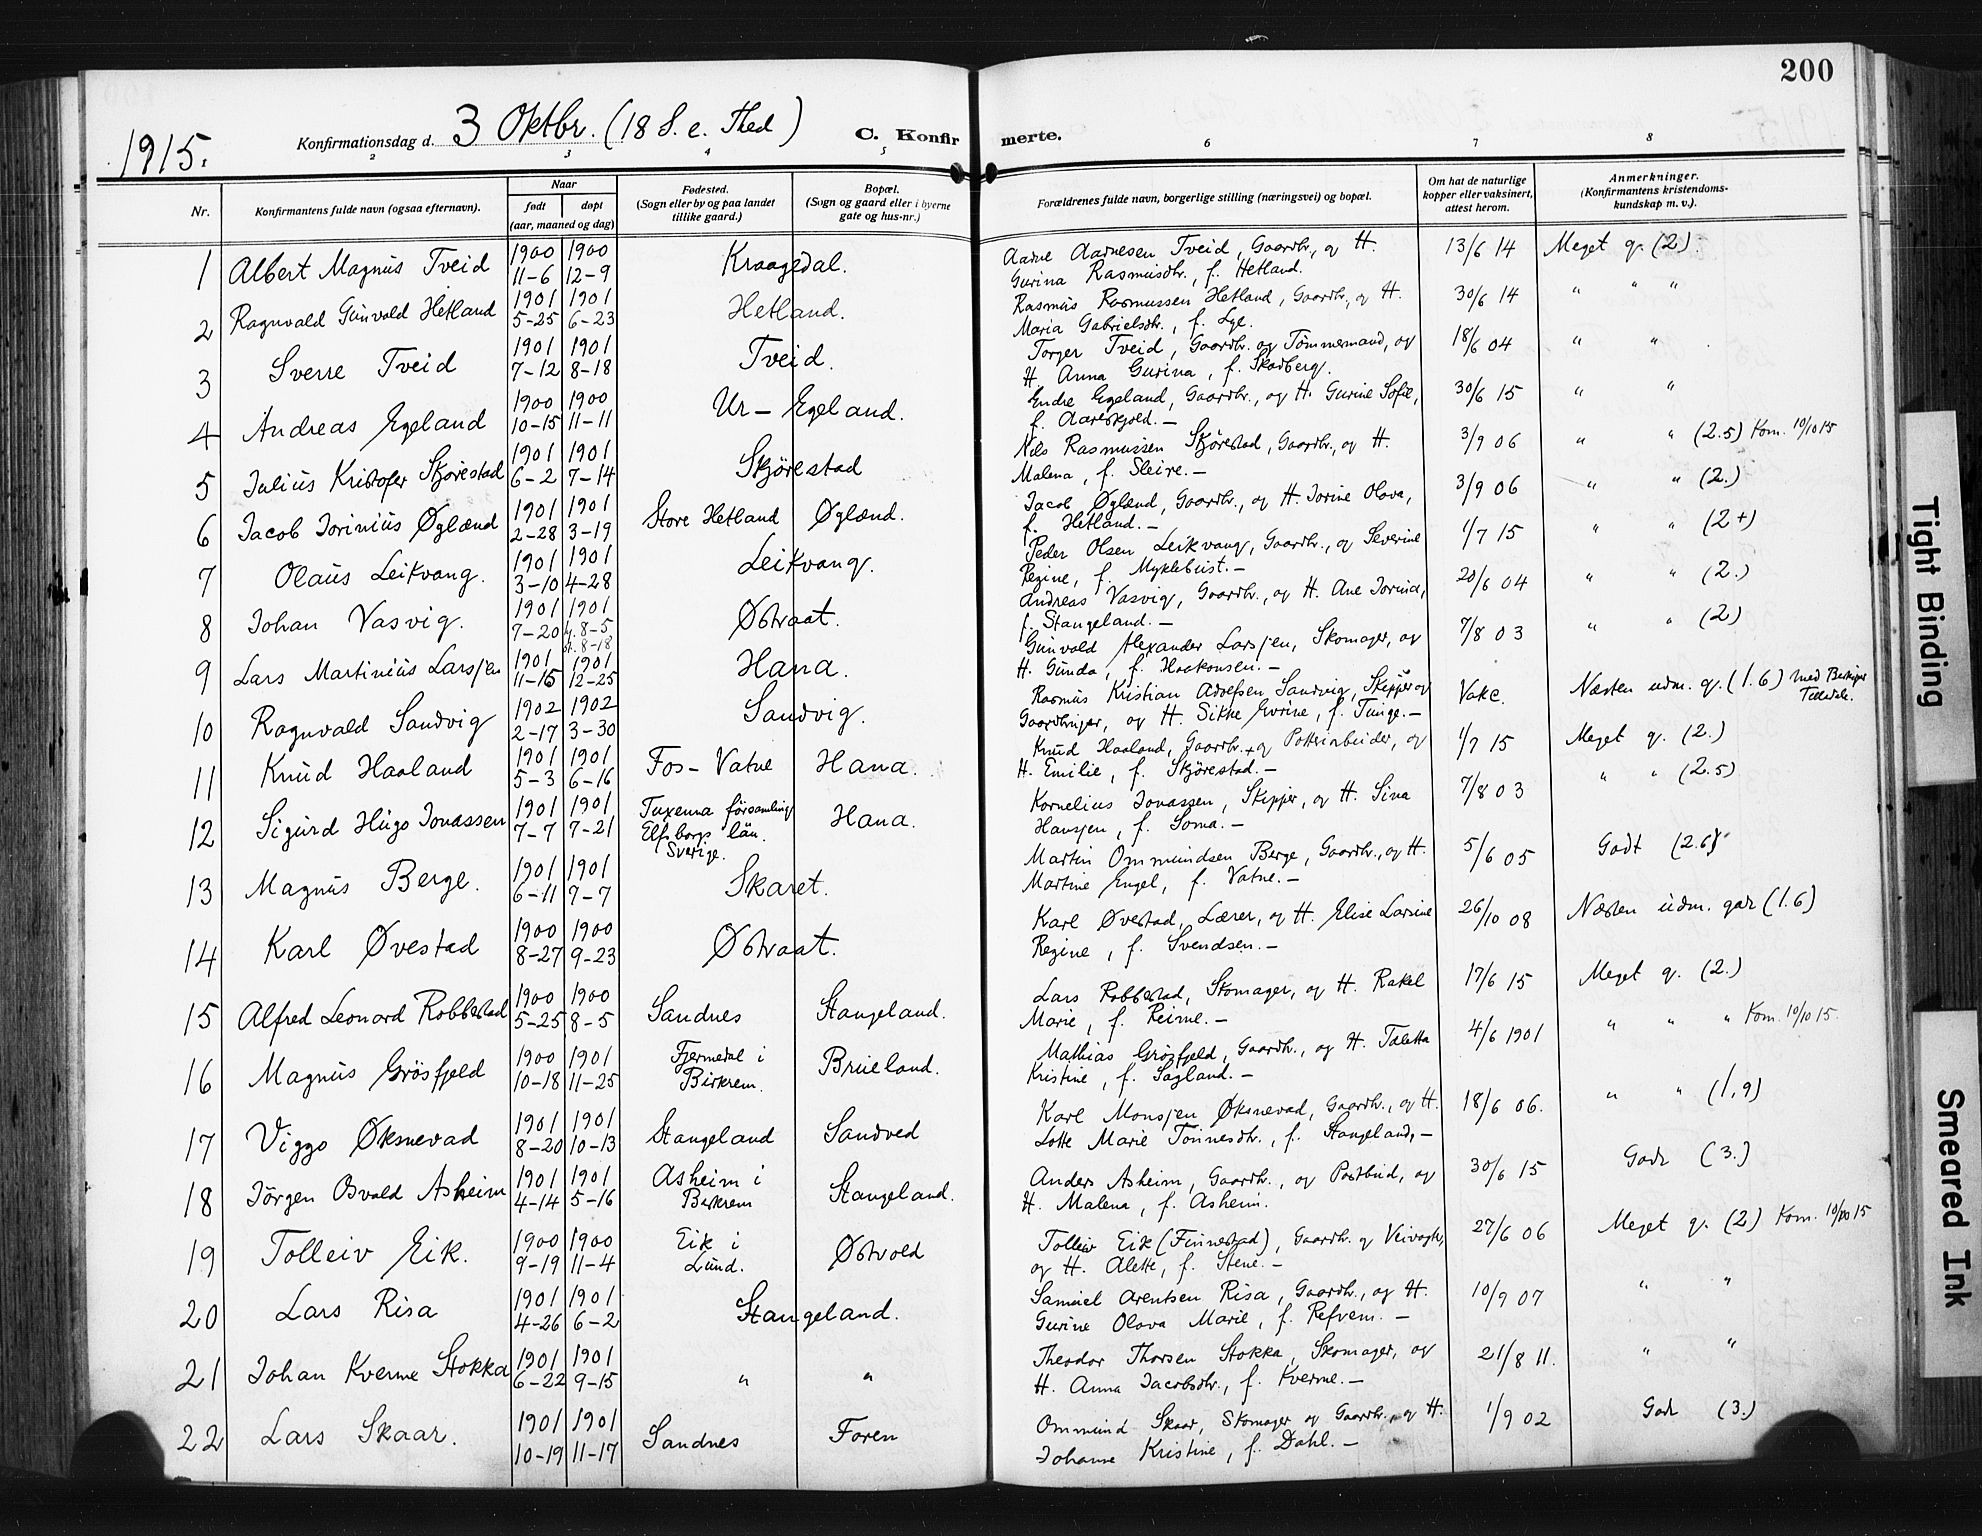 200
1915. Konfirmationsdag d. 3 Oktbr. (18 S. e. Tred) C. Konfirmerte.
2 3 4 5 6 7 8
Nr. Konfirmantens fulde navn (ogsaa efternavn). Naar født døpt (aar, maaned og dag) Fødested. (Sogn eller by og paa landet tillike gaard.) Bopæl. (Sogn og gaard eller i byerne gate og hus-nr.) Forældrenes fulde navn, borgerlige stilling (næringsvei) og bopæl. Om hat de naturlige kopper eller vaksinert, attest herom. Anmerkninger. (Konfirmantens kristendomskundskap m. v.).
1 Albert Magnus Tveid 1900 11-6 1900 12-9 Kraagedal. Aadne Aadnesen Tveid, Gaardbr, og H. 13/6 14 Meget g. (2).
Gurina Rasmusdtr., f. Hetland.
2 Ragnvald Gunvald Hetland 1901 5-25 1901 6-23 Hetland. Rasmus Rasmussen Hetland, Gaardbr., og H. 30/6 14 " " "
Maria Gabrielsdtr., f. Lye.
3 Sverre Tveid 1901 7-12 1901 8-18 Tveid. Torger Tveid, Gaardbr. og Tömmemand, og 18/6 04 " "
H. Anna Gurina, f. Skadberg.
4 Andreas Egeland 1900 10-15 1900 11-11 Ur-Egeland. Endre Egeland, Gaardbr., og H. Gurine Sofie, 30/6 15 " "
f. Aarlskjold.-
5 Julius Kristofer Skjørestad 1901 6-2 1901 7-14 Skjörestad Nils Rasmussen Skjörestad, Gaardbr., og H. 3/9 06 " " (2.5) Kom. 10/10 15
Malena, f. Sleire.-
6 Jacob Jorinius Øglænd 1901 2-28 1901 3-19 Store Hetland Øglænd. Jacob Øglænd, Gaardbr., og H. Jorine Olava, 3/9 06 " " (2.)
f. Hetland.-
7 Olaus Leikvang. 1901 3-10 1901 4-28 Leikvang. Peder Olsen Leikvang, Gaardbr., og Severine 1/7 15 " " (2+)
Regine, f. Myklebust.-
8 Johan Vasvig. 1901 7-20 1901 hj. 8-5 st. 8-18 Østraat. Andreas Vasvig, Gaardbr., og H. Ane Jorina, 20/6 04 " " (2.)
f. Stangeland.-
9 Lars Martinius Larsjen 1901 11-15 1901 12-25 Hana. Gunvald Alexander Larsjen, Skomager, og 7/8 03 " " (2)
H. Gunda, f. Haakonsen.-
10 Ragnvald Sandvig 1902 2-17 1902 3-30 Sandvig. Rasmus Kristian Adolfsen Sandvig, Skipper og Vakc. Næsten udm. g. (1.6) Med Biskops Tilladl.
Gaardbruger, og H. Sikke Evrine, f. Tunge.-
11 Knud Haaland 1901 5-3 1901 6-16 Fos-Vatne Hana. Knud Haaland, Gaardbr. og Potteriarbeider, og 1/7 15 Meget g. (2.)
H. Emilie, f. Skjörestad.-
12 Sigurd Hugo Jonassen 1901 7-7 1901 7-21 Tuxema församling Elfsborgs län. Sverige. Hana. Kornelius Jonassen, Skipper, og H. Sina 7/8 03 " " (2.5)
Hansjen, f. Soma.-
13 Magnus Berge. 1901 6-11 1901 7-7 Skaret. Martin Ommundsen Berge, Gaardbr., og H. 5/6 05 Godt (2.6)
Martine Engel, f. Vatne.-
14 Karl Øvestad 1900 8-27 1900 9-23 Østraat. Karl Øvestad, Lærer, og H. Elise Larsine 26/10 08 Næsten udm. godt (1.6)
Regine, f. Svendsen.-
15 Alfred Leonard Robbestad 1900 5-25 1900 8-5 Sandnes Stangeland. Lars Robbestad, Skomager, og H. Rakel 17/6 15 Meget g. (2.)
Marie, f. Reime.-
16 Magnus Grösfjeld 1900 10-18 1901 11-25 Fjermedal i Birkrem. Brueland. Mathias Grösfjeld, Gaardbr., og H. Taletta 4/6 1901 " " " Kom. 10/10 15.
Kristine, f. Sagland.-
17 Viggo Øksnevad 1901 8-20 1901 10-13 Stangeland Sandved Karl Monsjen Øksnevad, Gaardbr., og H. 18/6 06. " " (1,9)
Lotte Marie Tönnesdtr., f. Stangeland,-
18 Jörgen Osvald Asheim 1901 4-14 1901 5-16 Asheim i Birkrem Stangeland. Anders Asheim, Gaardbr., og Postbud, og 30/6 15 Godt (3.)
H. Malena, f. Asheim.
19 Tolleiv Eik. 1900 9-19 1900 11-4 Eik i Lund. Østvold Tolleiv Eik (Finnestad), Gaardbr. og Veivogter, 27/6 06 Meget g. (2) Kom. 10/10 15
og H. Alette, f. Stene.-
20 Lars Risa 1901 4-26 1901 6-2 Stangeland. Samuel Arentsen Risa, Gaardbr., og H. 10/9 07 " "
Gurine Olava Marie, f. Refvem.-
21 Johan Kverme Stokka 1901 6-22 1901 9-15 " " Theodor Thorsen Stokka, Skomager, og 21/8 11. " "
H. Anna Jacobsdtr., f. Kverme.-
22 Lars Skaar. 1901 10-19 1901 11-17 Sandnes Foren Ommund Skaar, Skomager og Gaardbr., og H. 1/9 02 Godt (3.)
Johanne Kristine, f. Dahl.-
Tight Binding
Smeared Ink